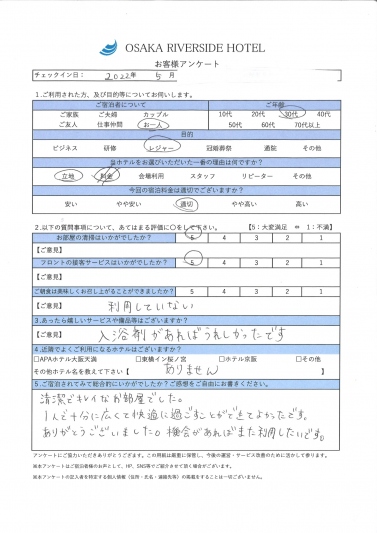 OSAKA RIVERSIDE HOTEL
お客様アンケート
チェックイン日： 2022年 5月
1.ご利用された方、及び目的等についてお伺いします。
ご宿泊者について ご年齢
ご家族 ご夫婦 カップル 10代 20代 30代 40代
ご友人 仕事仲間 お一人 50代 60代 70代以上
目的
ビジネス 研修 レジャー 冠婚葬祭 通院 その他
当ホテルをお選びいただいた一番の理由は何ですか？
立地 料金 会場利用 スタッフ リピーター その他
今回の宿泊料金は適切でございますか？
安い やや安い 適切 やや高い 高い
2.以下の質問事項について、あてはまる評価に〇をして下さい。 【5：大変満足 ⇔ 1：不満】
お部屋の清掃はいかがでしたか？ 5 4 3 2 1
【ご意見】
フロントの接客サービスはいかがでしたか？ 5 4 3 2 1
【ご意見】
ご朝食は美味しくお召し上がることができましたか？ 5 4 3 2 1
【ご意見】 利用していない
3.あったら嬉しいサービスや備品等はございますか？
【ご意見】 入浴剤があればうれしかったです
4.近隣でよくご利用になるホテルはございますか？
□APAホテル大阪天満 □東横イン桜ノ宮 □ホテル京阪 □その他
その他ホテル名を教えて下さい【 ありません 】
5.ご宿泊されてみて総合的にいかがでしたか？ご感想をご自由にお書きください。
清潔でキレイなお部屋でした。
1人で十分に広くて快適に過ごすことができてよかったです。
ありがとうございました。機会があればまた利用したいです。
アンケートにご協力いただきありがとうございます。この用紙は厳重に保管し、今後の運営・サービス改善のために活かして参ります。
※本アンケートはご宿泊者様のお声として、HP、SNS等でご紹介させて頂く場合がございます。
※本アンケートの記入者を特定する個人情報（住所・氏名・連絡先等）の掲載をすることは一切ございません。